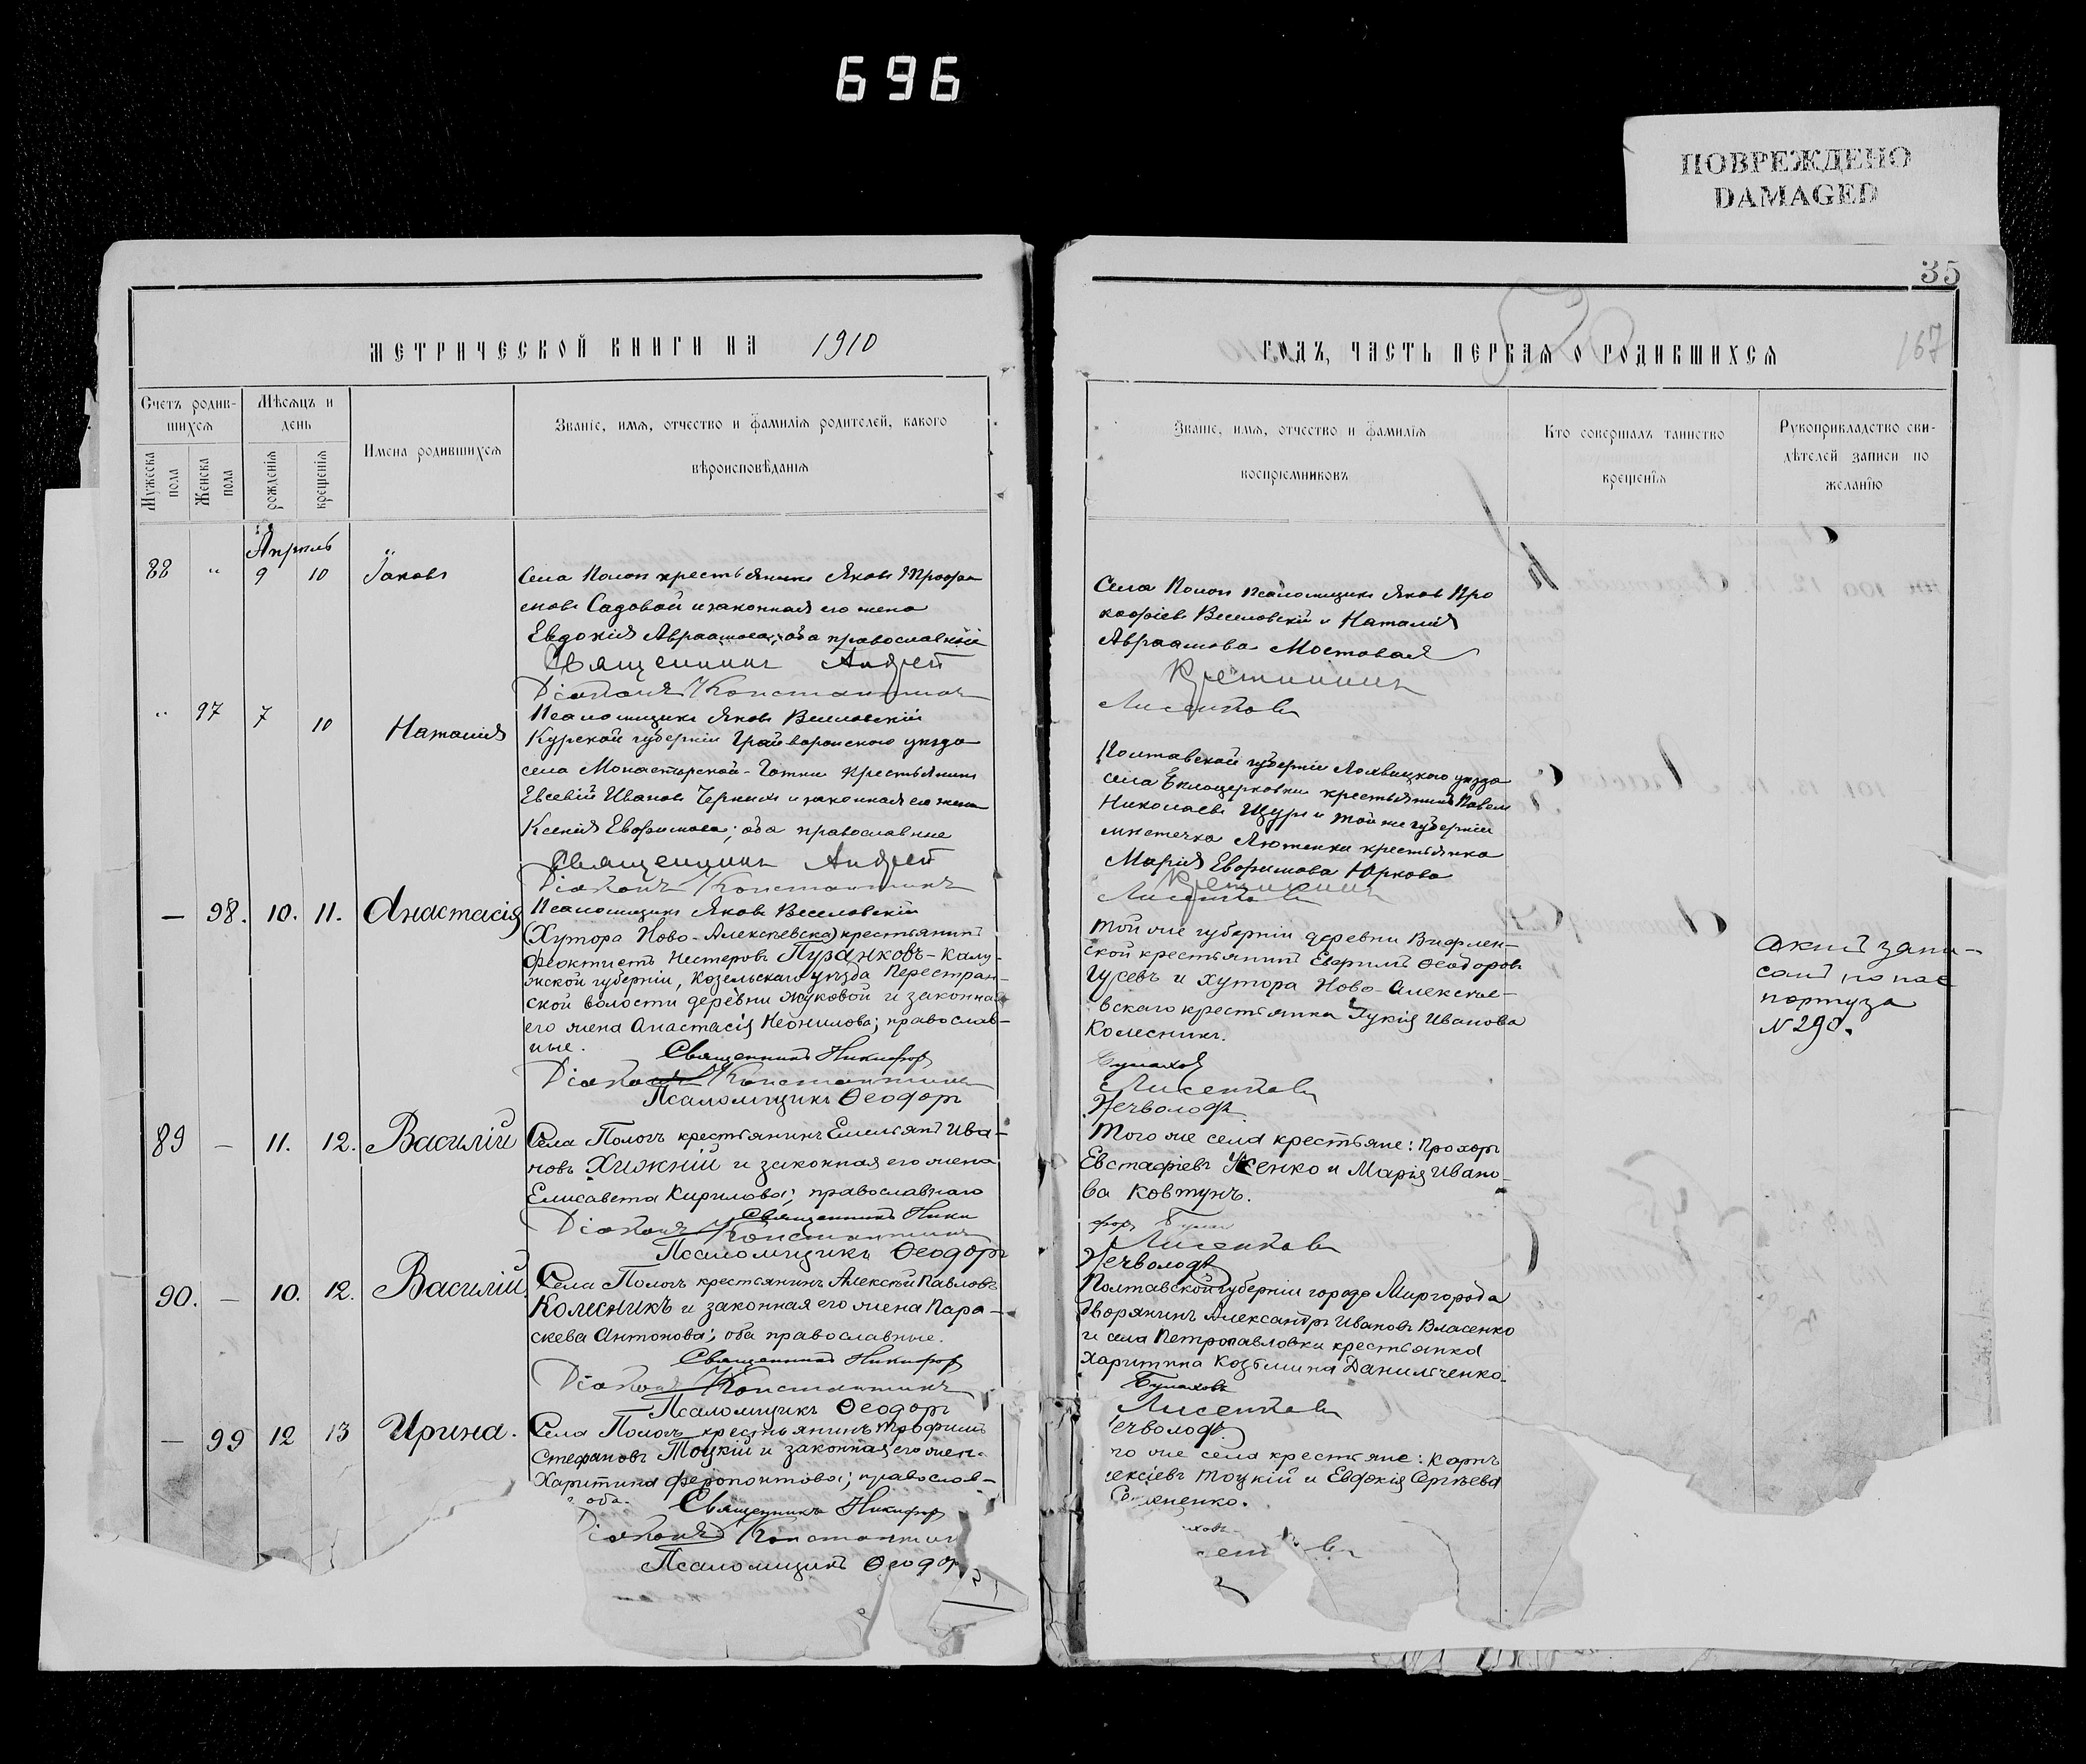 696
ПОВРЕЖДЕНО
DAMAGED
35
167
МЕТРИЧЕСКОЙ КНИГИ НА 1910
ГОДЪ, ЧАСТЬ ПЕРВАЯ О РОДИВШИХСЯ
Счетъ родив-
шихся
Мужеска пола
Женска пола
Мѣсяцъ и
день
рожденія
крещенія
Имена родившихся
Званіе, имя, отчество и фамилія родителей, какого
вѣроисповѣданія
Званіе, имя, отчество и фамилія
воспріемниковъ
Кто совершалъ таинство
крещенія
Рукоприкладство сви-
дѣтелей записи по
желанію
Апрель
88 " 9 10 Іаковъ
Села Полог крестьянинъ Яковъ Трофи
мовъ Садовой и законная его жена
Евдокія Авраамова; оба православные
Священникъ Андрей
Діаконъ Константинъ
Псаломщикъ Яковъ Веселовскій
Села Полог псаломщикъ Яковъ Про
кофіевъ Веселовскій и Наталія
Авраамова Мостовая
Лисенковъ
" 97 7 10 Наталия
Курской губерніи Грайворонского уѣзда
села Монастырской-Готни крестьянинъ
Евсевій Ивановъ Черныхъ и законная его жена
Ксенія Евфимова; оба православные
Священникъ Андрей
Діаконъ Константинъ
Псаломщикъ Яковъ Веселовскій
Полтавской губерніи Лохвицкого уѣзда
села Бѣлоцерковки крестьянинъ Павелъ
Николаевъ Щуръ и той же губерніи
мѣстечка Лютеньки крестьянка
Марія Евфимова Юркова
Лисенковъ
— 98. 10. 11. Анастасія
(Хутора Ново-Алексѣевска) крестьянинъ
Феоктистъ Нестеровъ Пуранковъ - Калу-
жской губерніи, Козельскаго уѣзда Перестряж-
ской волости деревни Жуковой и законная
его жена Анастасія Неонилова; православ-
ные.
Священникъ Никифоръ
Діаконъ Константинъ
Псаломщикъ Ѳеодоръ
той же губерніи деревни Вифлен-
ской крестьянинъ Евфримъ Ѳеодоровъ
Гусевъ и хутора Ново-Алексѣе-
вскаго крестьянка Лукія Иванова
Колесникъ.
Булаховъ
Лисенковъ
Нечволодъ
Актъ запи-
санъ по пас
порту за
№ 290.
89 — 11. 12. Василій
Села Пологъ крестьянинъ Емельянъ Ива-
новъ Хижній и законная его жена
Елисавета Кирилова; православнаго
Священникъ Ники
Діаконъ Константинъ
Псаломщикъ Ѳеодоръ
Того же села крестьяне: Прохоръ
Евстафіевъ Усенко и Марія Ивано-
ва Ковтунъ.
форъ
Лисенковъ
Нечволодъ
90. — 10. 12. Василій
Села Пологъ крестьянинъ Алексѣй Павловъ
Колесникъ и законная его жена Пара-
скева Антонова; оба православные.
Священникъ Никифоръ
Діаконъ Константинъ
Псаломщикъ Ѳеодоръ
Полтавской губерніи города Миргорода
дворянинъ Александръ Ивановъ Власенко
и села Петропавловки крестьянка
Харитина Козьмина Данильченко.
Булаховъ
Лисенковъ
ечволодъ
— 99 12 13 Ирина.
Села Пологъ крестьянинъ Трофимъ
Стефановъ Тоцкій и законная его жен.
Харитина Ферапонтова; православ-
оба.
Священникъ Никифоръ
Діаконъ Константин
Псаломщикъ Ѳеодор
го же села крестьяне: Карпъ
лексіевъ Тоцкій и Евфокія Сергѣева
яненко.
ховъ